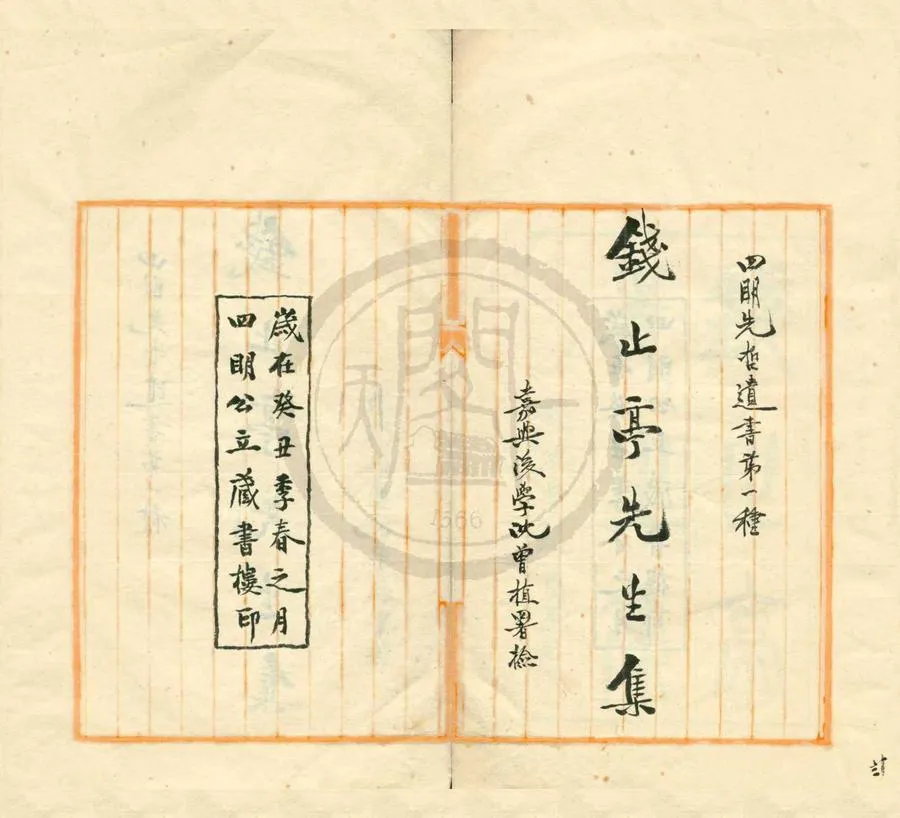 四明先哲遺書第一種
錢止亭先生集
嘉興後學沈曾植署檢
歲在癸丑季春之月
四明公立藏書樓印
天一閣
1566